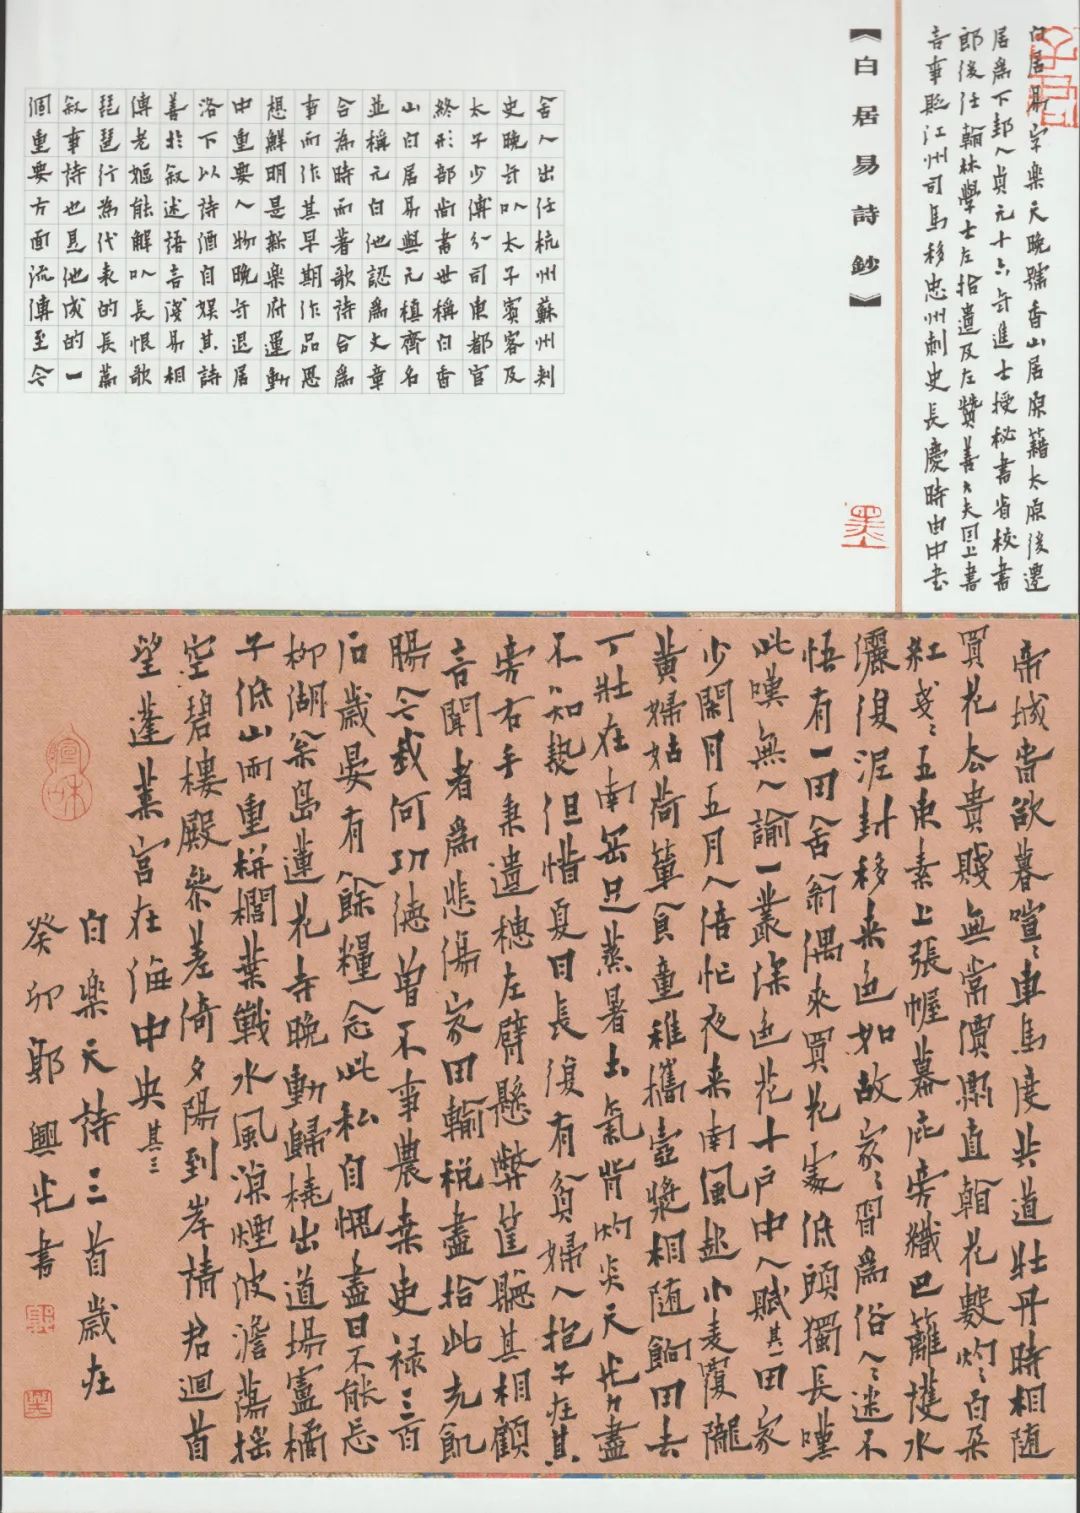 白居易字樂天晚號香山居原籍太原後遷
居為下邽人貞元十六年進士授秘書省校書
郎後任翰林學士左拾遺及左贊善大夫因上書
言事貶江州司馬移忠州刺史長慶時由中書
《白居易詩鈔》
舍人出任杭州蘇州刺
史晚年以太子賓客及
太子少傅分司東都官
終刑部尚書世稱白香
山白居易與元稹齊名
並稱元白他認為文章
合為時而著歌詩合為
事而作其早期作品思
想鮮明是新樂府運動
中重要人物晚年退居
洛下以詩酒自娛其詩
善於敘述語言淺易相
傳老嫗能解以長恨歌
琵琶行為代表的長篇
敘事詩也是他成的一
個重要方面流傳至今
帝城當欲暮喧々車馬度共道牡丹時相隨
買花去貴賤無常價酬直翰花數灼々百朵
紅戔々五束素上張幄幕庇旁織巴籬護水
灑復泥封移來色如故家々習為俗人々迷不
悟有一田舍翁偶來買花處低頭獨長嘆
此嘆無人諭一叢深色花十戶中人賦其一田家
少閑月五月人倍忙夜來南風起小麦覆隴
黃婦姑荷簞食童稚攜壺漿相隨餉田去
丁壯在南岡足蒸暑土氣背灼炎天光力盡
不知熱但惜夏日長復有貧婦人抱子在其
旁右手秉遺穗左臂懸弊筐聽其相顧
言聞者為悲傷家田輸稅盡拾此充飢
腸今我何功德曾不事農桑吏祿三百
石歲晏有餘糧念此私自愧盡日不能忘
柳湖松島蓮花寺晚動歸橈出道場盧橘
子低山雨重栟櫚葉戰水風涼煙波澹蕩搖
空碧樓殿參差倚夕陽到岸請君迴首
望蓬萊宮在海中央其三
白樂天詩三首歲在
癸卯郭興光書